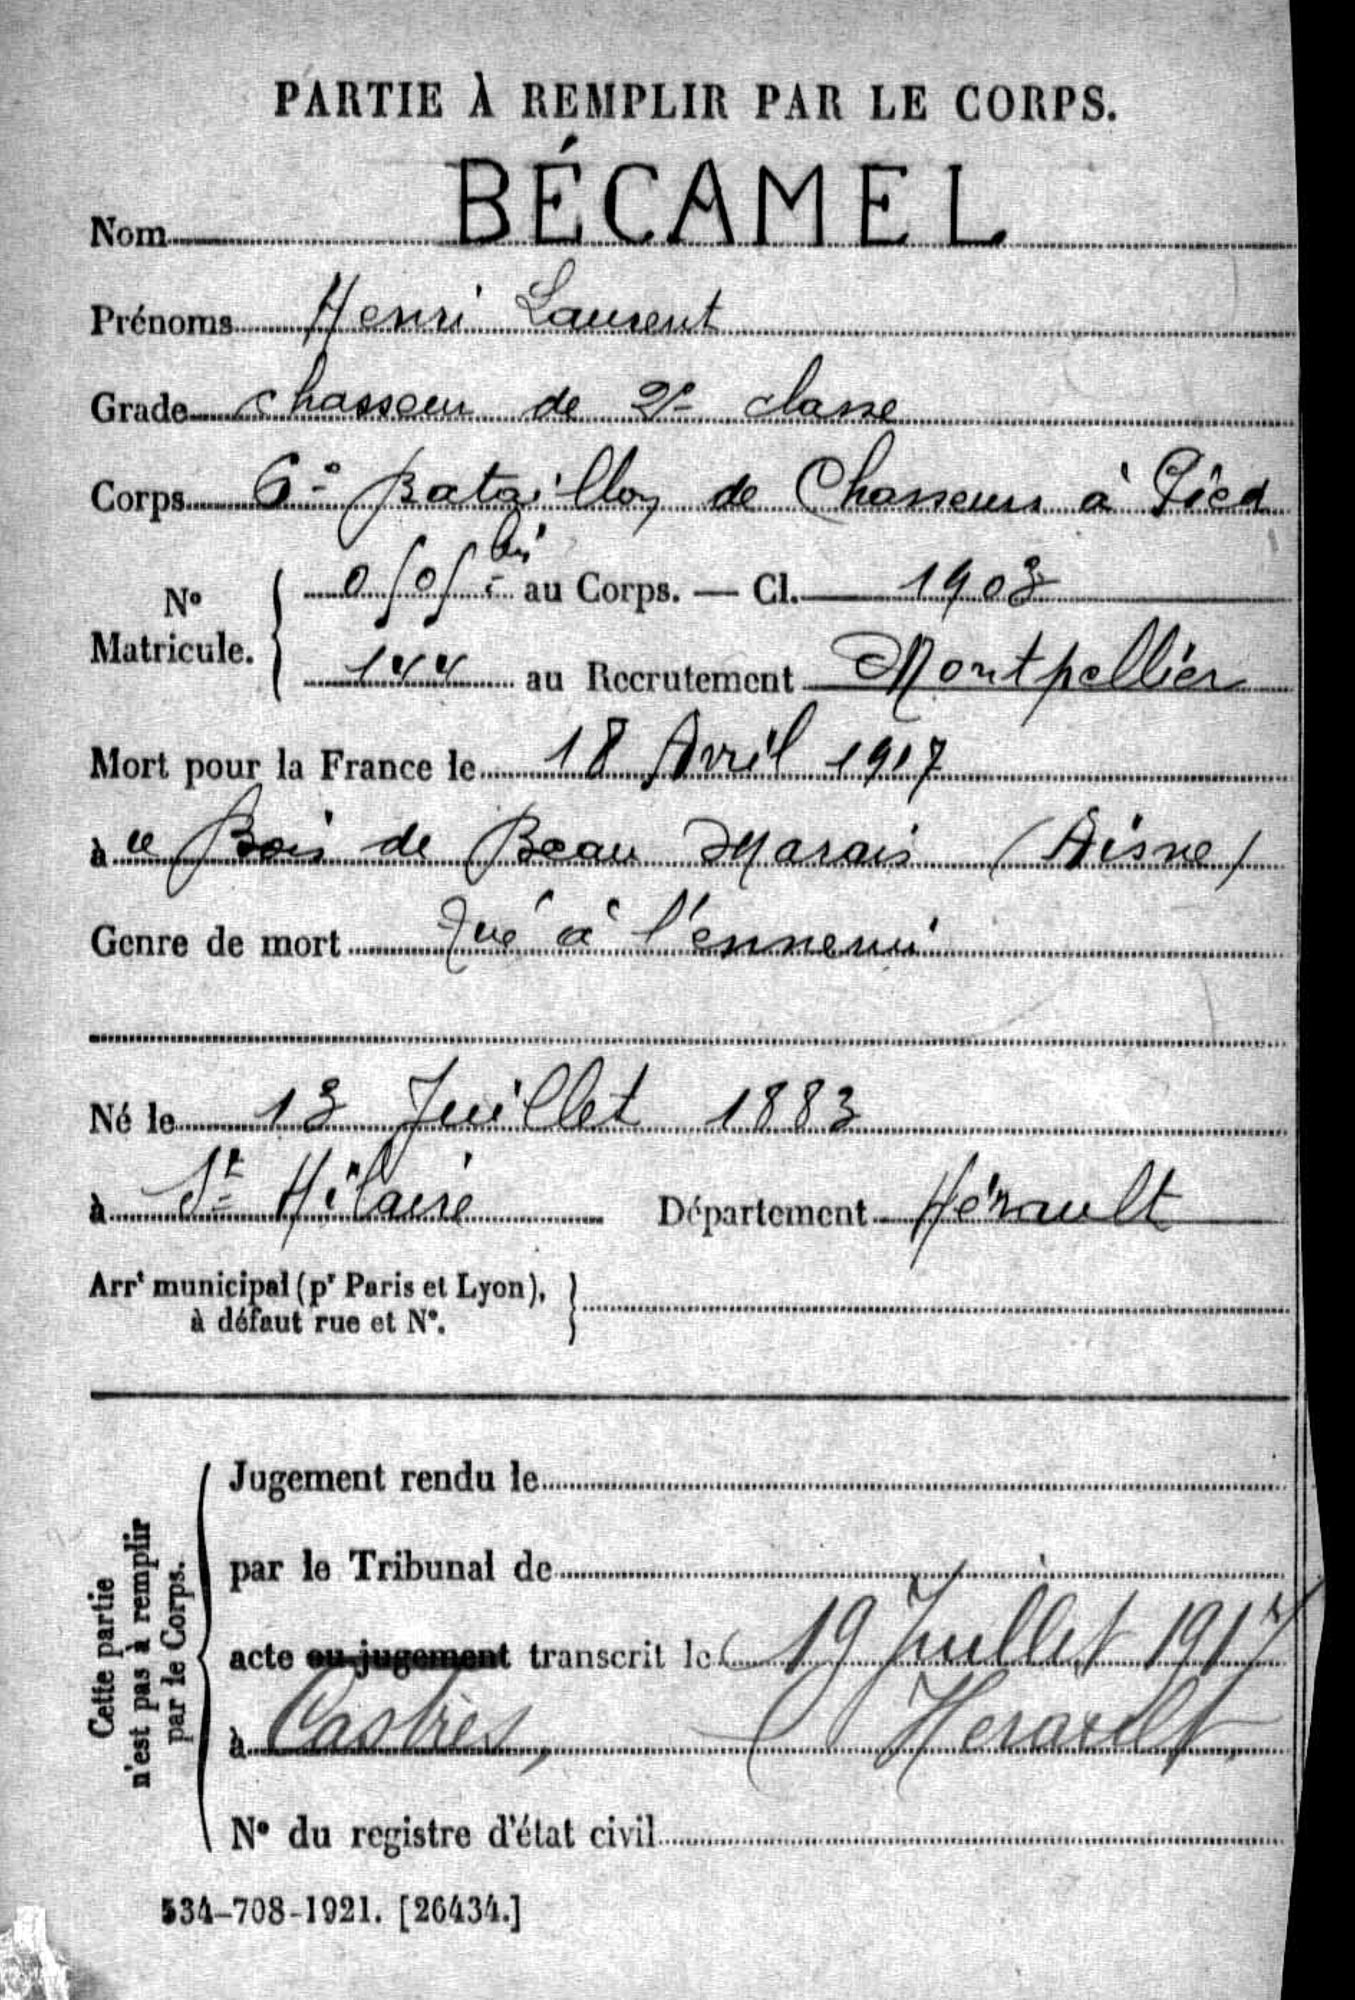 PARTIE À REMPLIR PAR LE CORPS.
Nom BÉCAMEL
Prénoms Henri Laurent
Grade chasseur de 2e classe
Corps 6e Bataillon de Chasseurs à Pied
N° Matricule. { bis au Corps. — Cl. 1903
144 au Recrutement Montpellier
Mort pour la France le 18 Avril 1917
à Bois de Beau Marais (Aisne)
Genre de mort Tué à l'ennemi
Né le 13 Juillet 1883
à St Hilaire Département Hérault
Arrt municipal (pr Paris et Lyon), à défaut rue et N°. }
Cette partie n'est pas à remplir par le Corps.
Jugement rendu le
par le Tribunal de
acte ou jugement transcrit le 19 Juillet 1917
à Castries, Herault
N° du registre d'état civil
534-708-1921. [26434.]